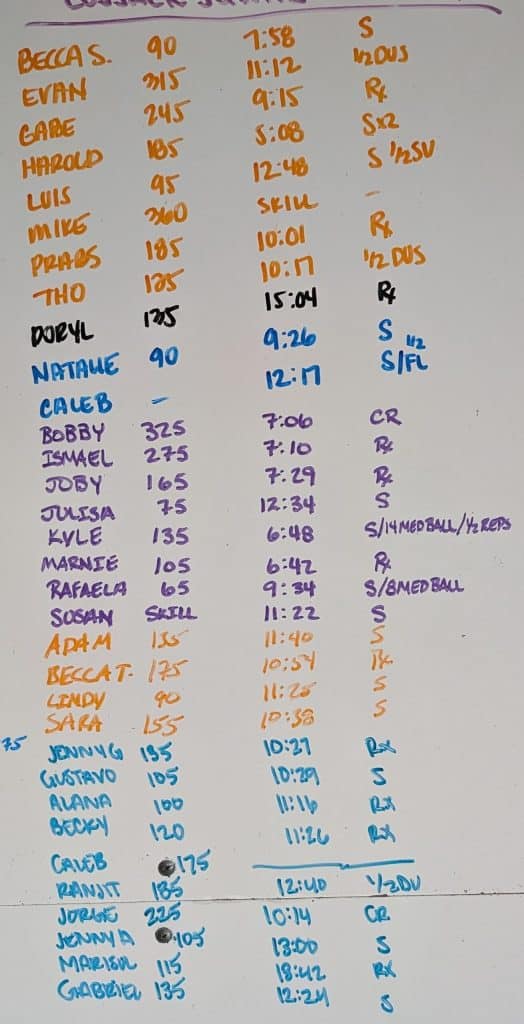 BECCA S. 90 7:58 S
EVAN 315 11:12 1/2 DUS
GABE 245 9:15 Rx
HAROLD 185 5:08 Sx2
LUIS 95 12:48 S 1/2 SU
MIKE 360 SKILL -
PRABS 185 10:01 Rx
THO 135 10:17 1/2 DUS
DORYL 135 15:04 Rx
NATALIE 90 9:26 S
CALEB - 12:17 S/FL 1/2
BOBBY 325 7:06 CR
ISMAEL 275 7:10 Rx
JOBY 165 7:29 Rx
JULISA 75 12:34 S
KYLE 135 6:48 S/14 MED BALL/1/2 REPS
MARNIE 105 6:42 Rx
RAFAELA 65 9:34 S/8 MED BALL
SUSAN SKILL 11:22 S
ADAM 135 11:40 S
BECCA T. 175 10:54 Rx
LINDY 90 11:25 S
SARA 155 10:38 S
75 JENNY G 135 10:27 Rx
GUSTAVO 105 10:29 S
ALANA 100 11:16 Rx
BECKY 120 11:26 Rx
CALEB 175
RANJIT 185 12:40 1/2 DU
JORGE 225 10:14 CR
JENNY A 105 13:00 S
MARISOL 115 18:42 Rx
GABRIEL 135 12:24 S